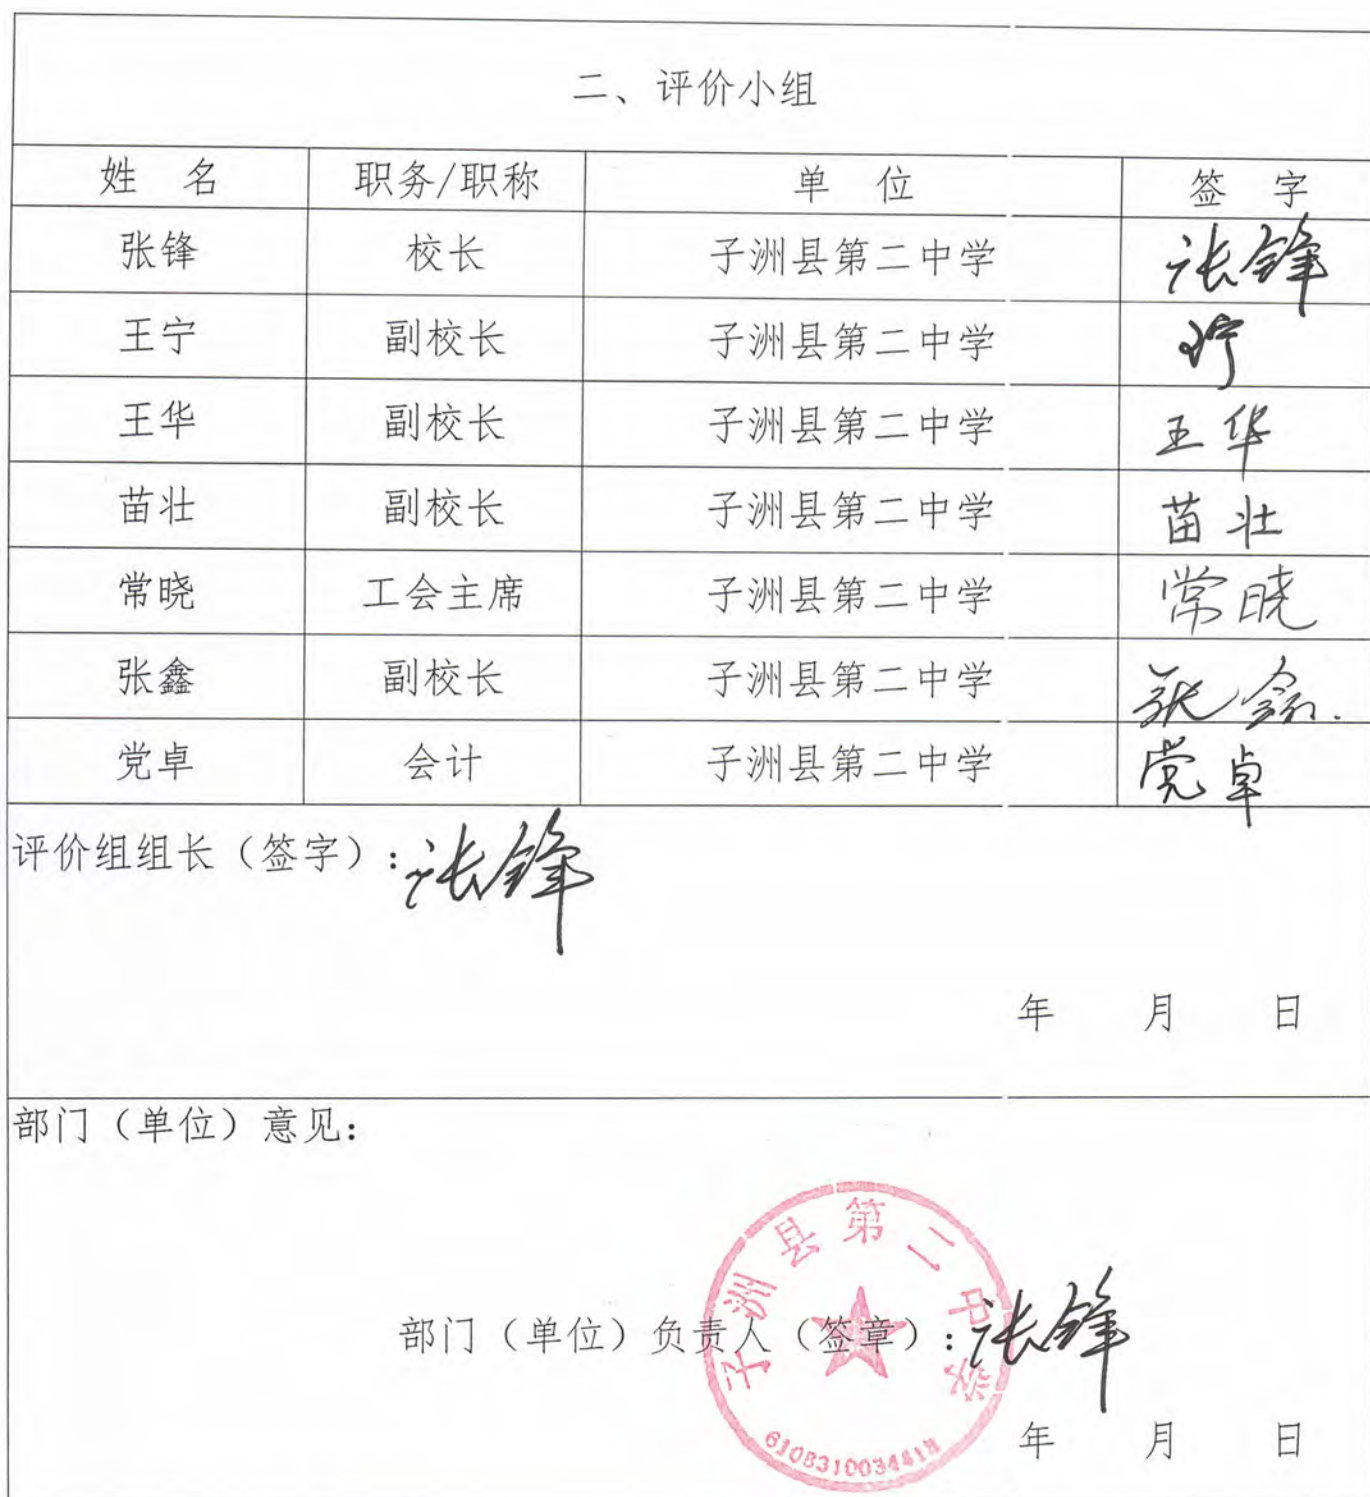 二、评价小组
姓 名 职务/职称 单 位 签 字
张锋 校长 子洲县第二中学 张锋
王宁 副校长 子洲县第二中学 王宁
王华 副校长 子洲县第二中学 王华
苗壮 副校长 子洲县第二中学 苗壮
常晓 工会主席 子洲县第二中学 常晓
张鑫 副校长 子洲县第二中学 张鑫
党卓 会计 子洲县第二中学 党卓
评价组组长（签字）：张锋
年 月 日
部门（单位）意见：
子洲县第二中学
部门（单位）负责人（签章）：张锋
年 月 日